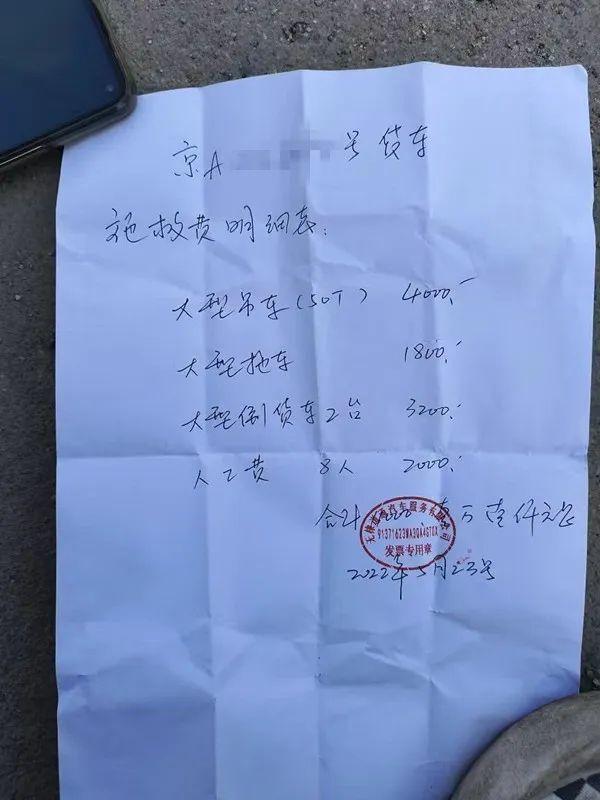 京A 号货车
施救费明细表:
大型吊车(50T) 4000.-
大型拖车 1800.-
大型倒货车2台 3200.-
人工费 8人 2000.-
合计 壹万壹仟元正
汽车服务有限公司
发票专用章
2022年5月23号